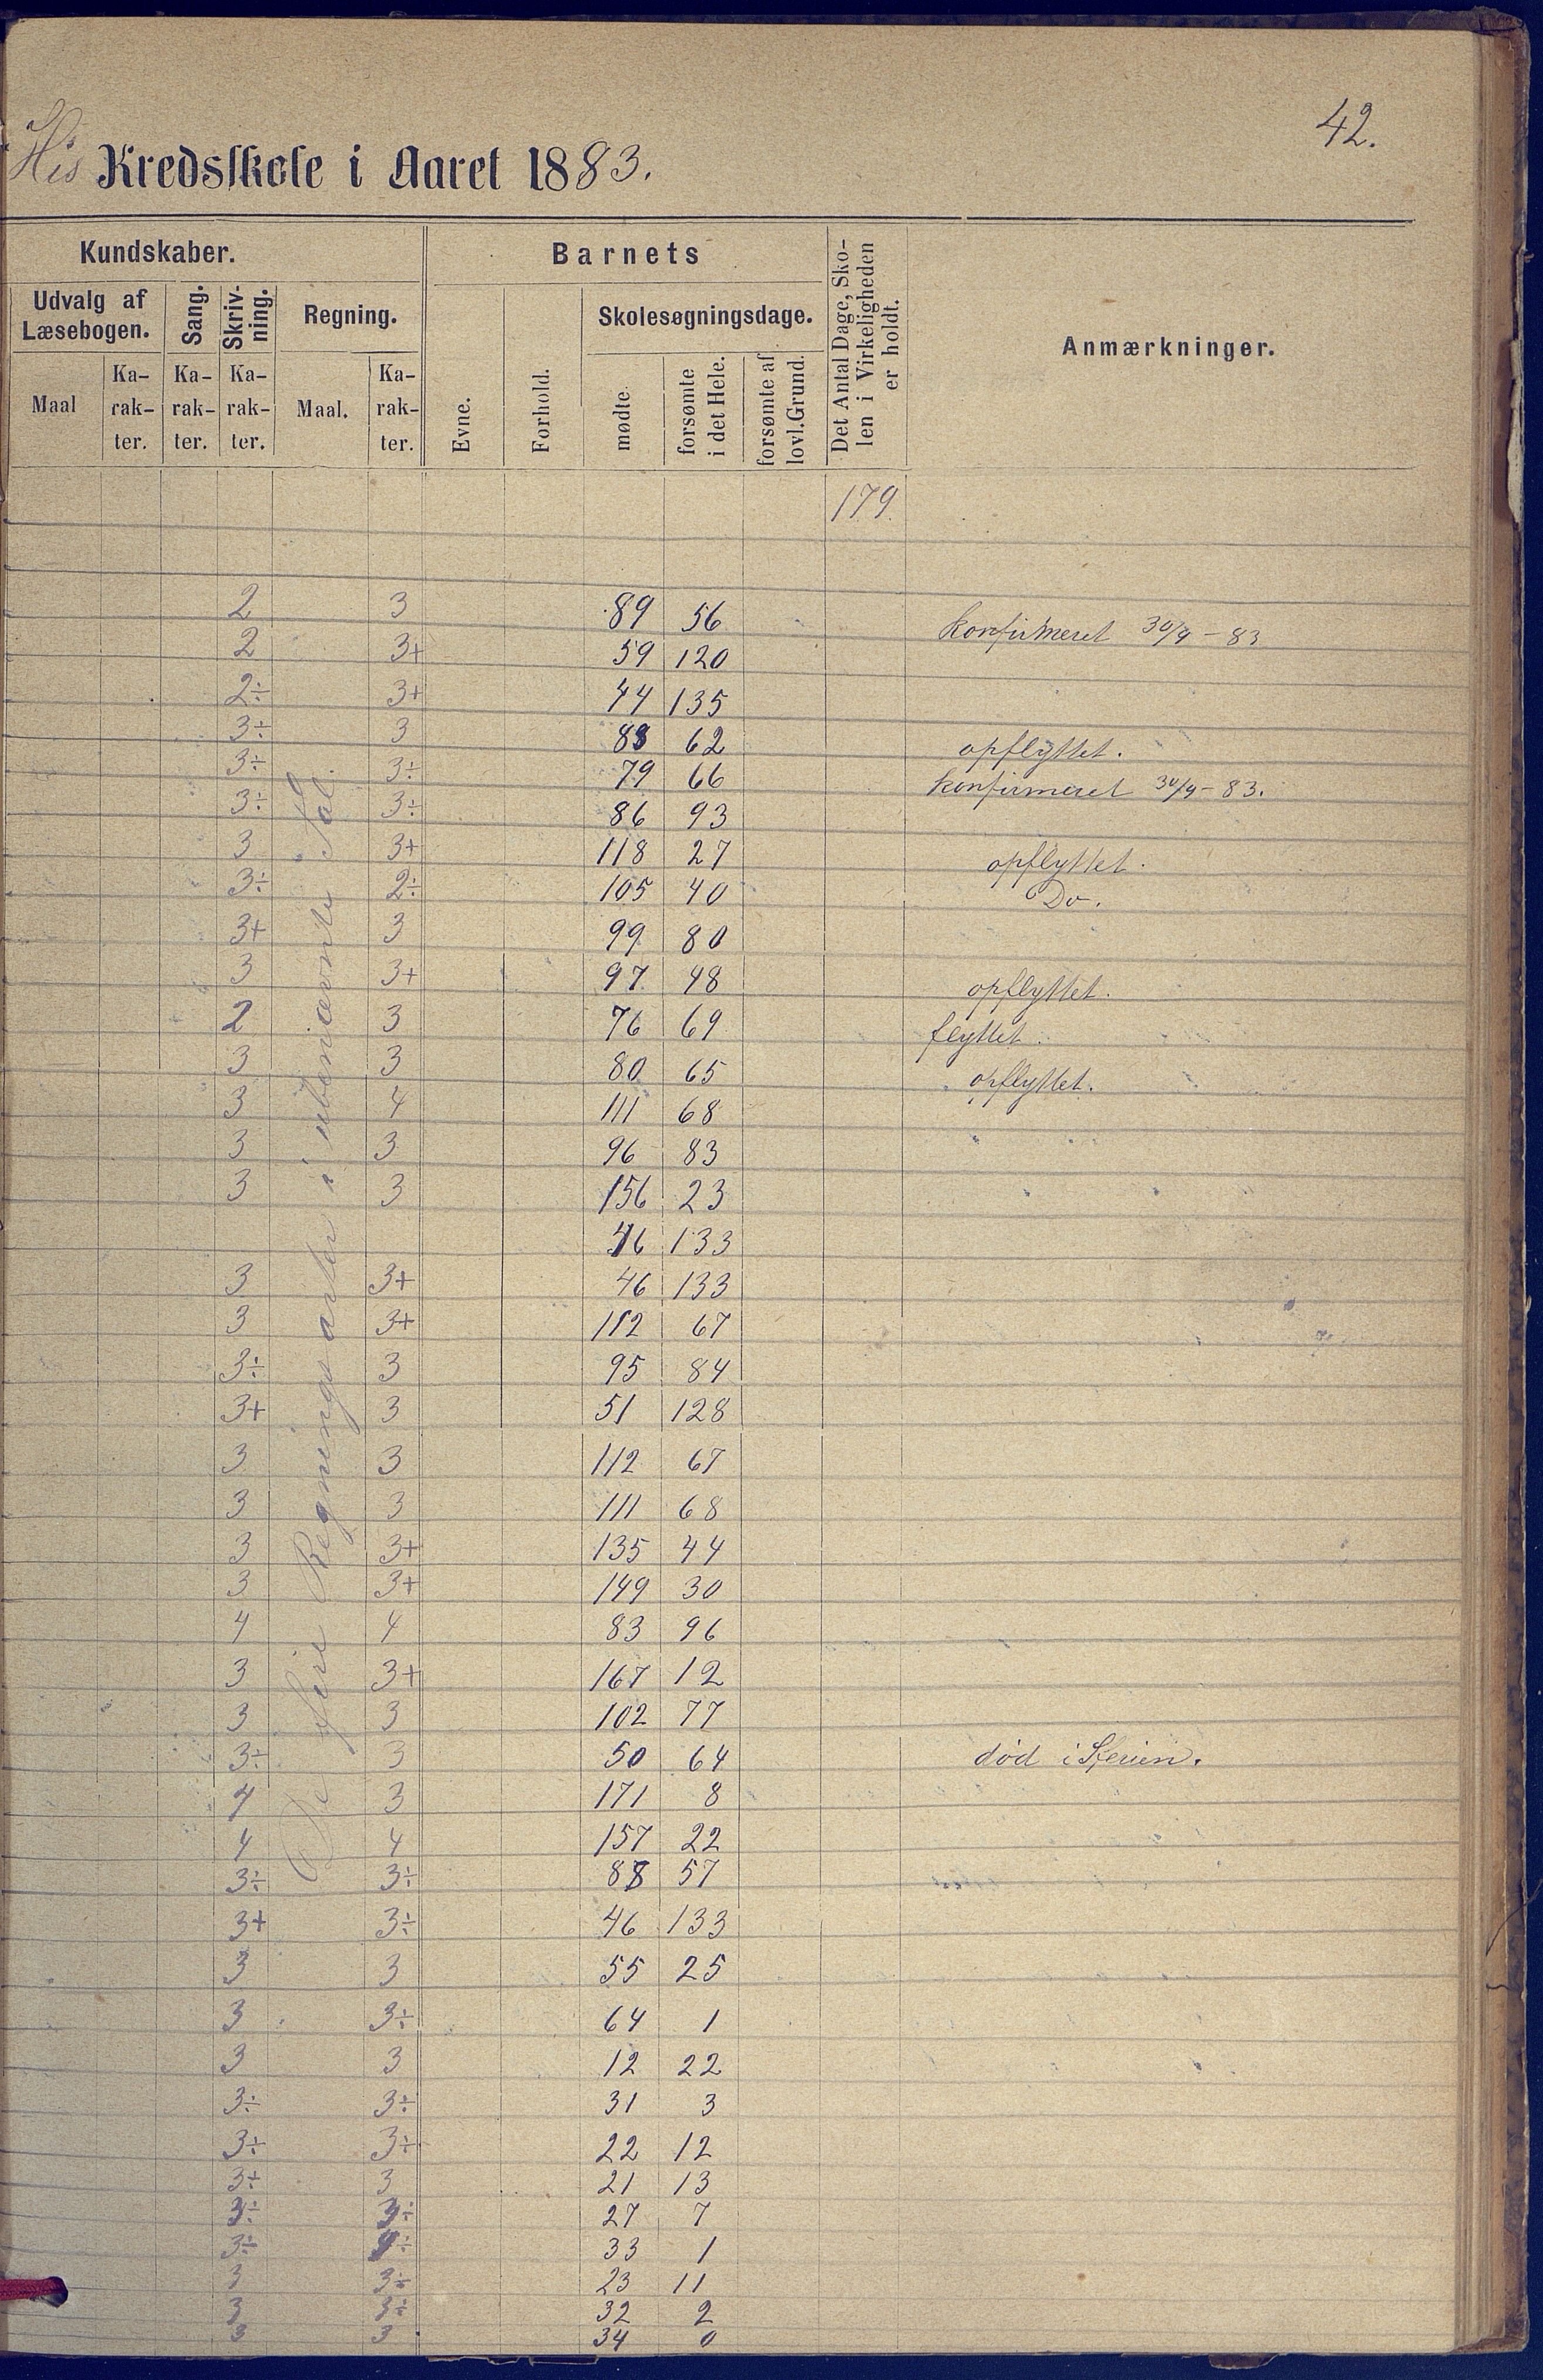 42.
His Kredsskole i Aaret 1883.
Kundskaber. Barnets Det Antal Dage, Sko-len i Virkeligheden er holdt. Anmærkninger.
Udvalg af Læsebogen. Sang. Skriv-ning. Regning. Evne. Forhold. Skolesøgningsdage.
Maal Ka-rak-ter. Ka-rak-ter. Ka-rak-ter. Maal. Ka-rak-ter. mødte. forsømte i det Hele. forsømte af lovl. Grund.
179.
De fire Regningsarter i ubenævnte Tal.
2 3 89 56 konfirmeret 30/9 - 83
2 3+ 59 120
2÷ 3+ 44 135
3÷ 3 83 62 opflyttet.
3÷ 3÷ 79 66 konfirmeret 30/9 - 83.
3÷ 3÷ 86 93
3 3+ 118 27 opflyttet.
3÷ 2÷ 105 40 Do.
3+ 3 99 80
3 3+ 97 48 opflyttet.
2 3 76 69 flyttet.
3 3 80 65 opflyttet.
3 4 111 68
3 3 96 83
3 3 156 23
46 133
3 3+ 46 133
3 3+ 112 67
3÷ 3 95 84
3+ 3 51 128
3 3 112 67
3 3 111 68
3 3+ 135 44
3 3+ 149 30
4 4 83 96
3 3+ 167 12
3 3 102 77
3÷ 3 50 64 død i Ferien.
4 3 171 8
4 4 157 22
3÷ 3÷ 88 57
3+ 3÷ 46 133
3 3 55 25
3 3÷ 64 1
3 3 12 22
3÷ 3÷ 31 3
3÷ 3÷ 22 12
3+ 3 21 13
3÷ 3÷ 27 7
3÷ 4÷ 33 1
3 3÷ 23 11
3 3÷ 32 2
3 3 34 0